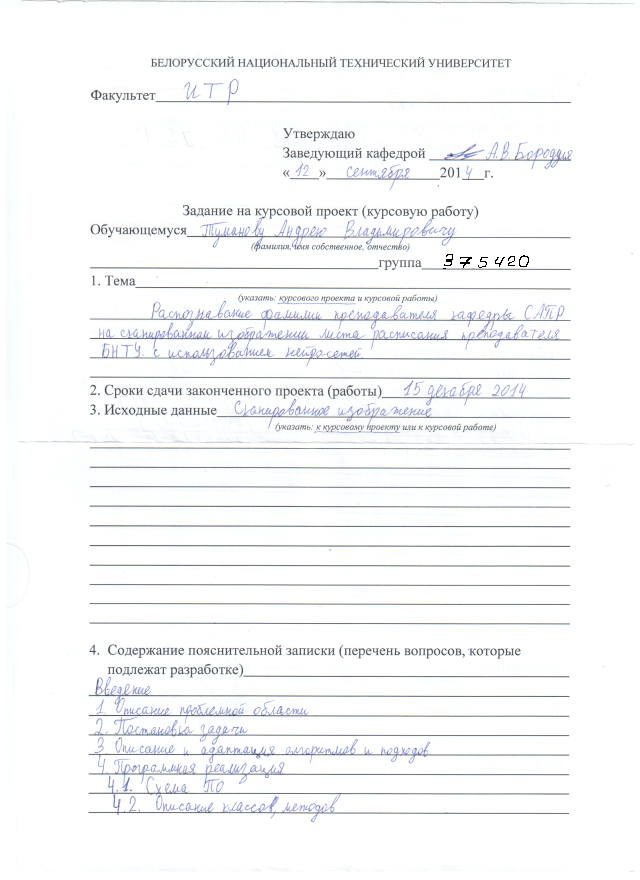 БЕЛОРУССКИЙ НАЦИОНАЛЬНЫЙ ТЕХНИЧЕСКИЙ УНИВЕРСИТЕТ
Факультет ИТР
Утверждаю
Заведующий кафедрой А.В. Бородуля
« 12 » сентября 2014 г.
Задание на курсовой проект (курсовую работу)
Обучающемуся Туманову Андрею Владимировичу
(фамилия, имя собственное, отчество)
группа 375420
1. Тема
(указать: курсового проекта и курсовой работы)
Распознавание фамилии преподавателя кафедры САПР
на сканированном изображении листа расписания преподавателя
БНТУ с использованием нейросетей
2. Сроки сдачи законченного проекта (работы) 15 декабря 2014
3. Исходные данные Сканированное изображение
(указать: к курсовому проекту или к курсовой работе)
4. Содержание пояснительной записки (перечень вопросов, которые
подлежат разработке)
Введение
1. Описание проблемной области
2. Постановка задачи
3. Описание и адаптация алгоритмов и подходов
4. Программная реализация
4.1. Схема ПО
4.2. Описание классов, методов